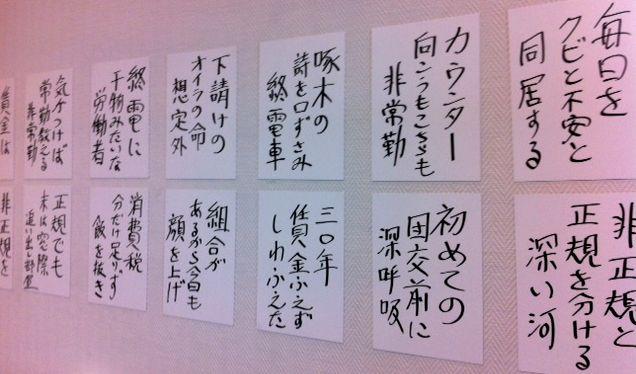 毎日を
クビと不安と
同居する
カウンター
向こうもこちらも
非常勤
啄木の
詩を口ずさみ
終電車
下請けの
オイラの命
想定外
終電に
干物みたいな
労働者
気がつけば
常勤教える
非常勤
賃金は
非正規と
正規を分ける
深い河
初めての
団交前に
深呼吸
三〇年
賃金ふえず
しわふえた
組合が
あるから今日も
顔を上げ
消費税
分だけ足りず
飯を抜き
正規でも
末は窓際
追い出し部屋
非正規を